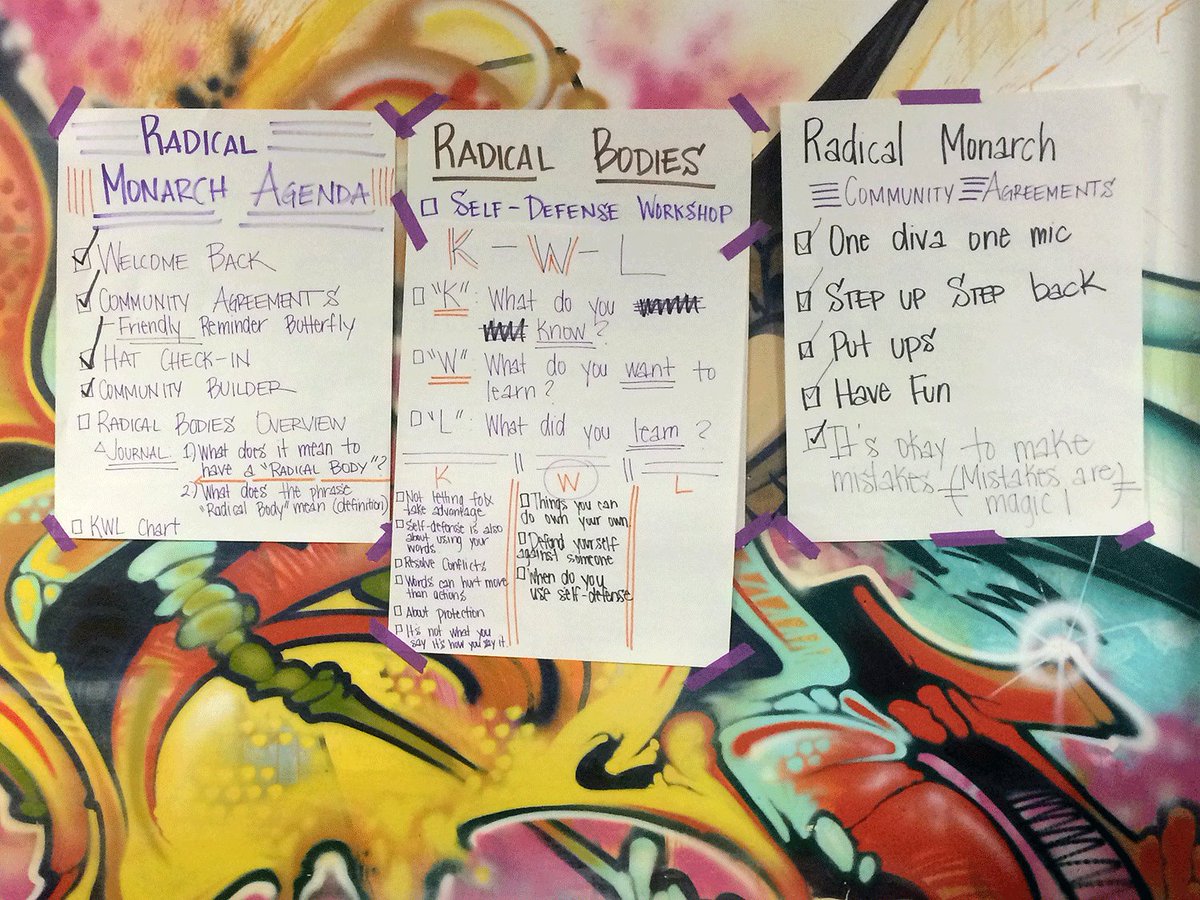 RADICAL
MONARCH AGENDA
WELCOME BACK
COMMUNITY AGREEMENTS
- Friendly Reminder Butterfly
HAT CHECK-IN
COMMUNITY BUILDER
RADICAL BODIES OVERVIEW
JOURNAL: 1) What does it mean to
have a "RADICAL BODY"?
2) What does the phrase
"Radical Body" mean (definition)
KWL Chart
RADICAL BODIES
SELF-DEFENSE WORKSHOP
K - W - L
"K": What do you
know?
"W" What do you want to
learn?
"L": What did you learn?
K W L
Not letting folx
take advantage
Self-defense is also
about using your
words
Resolve Conflicts
Words can hurt more
than actions
About protection
It's not what you
say it's how you say it.
Things you can
do own your own
Defend yourself
against someone
When do you
use self-defense
Radical Monarch
COMMUNITY AGREEMENTS
One diva one mic
STEP UP STEP back
Put ups
Have Fun
It's okay to make
mistakes. (Mistakes are
magic!)